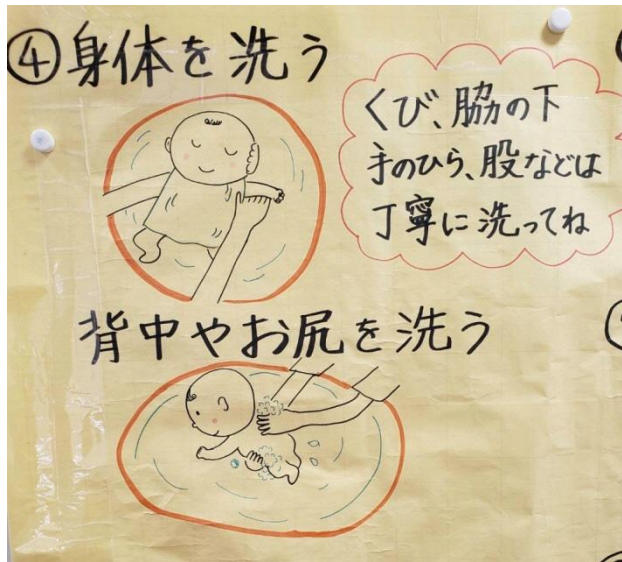 ④身体を洗う
くび、脇の下
手のひら、股などは
丁寧に洗ってね
背中やお尻を洗う